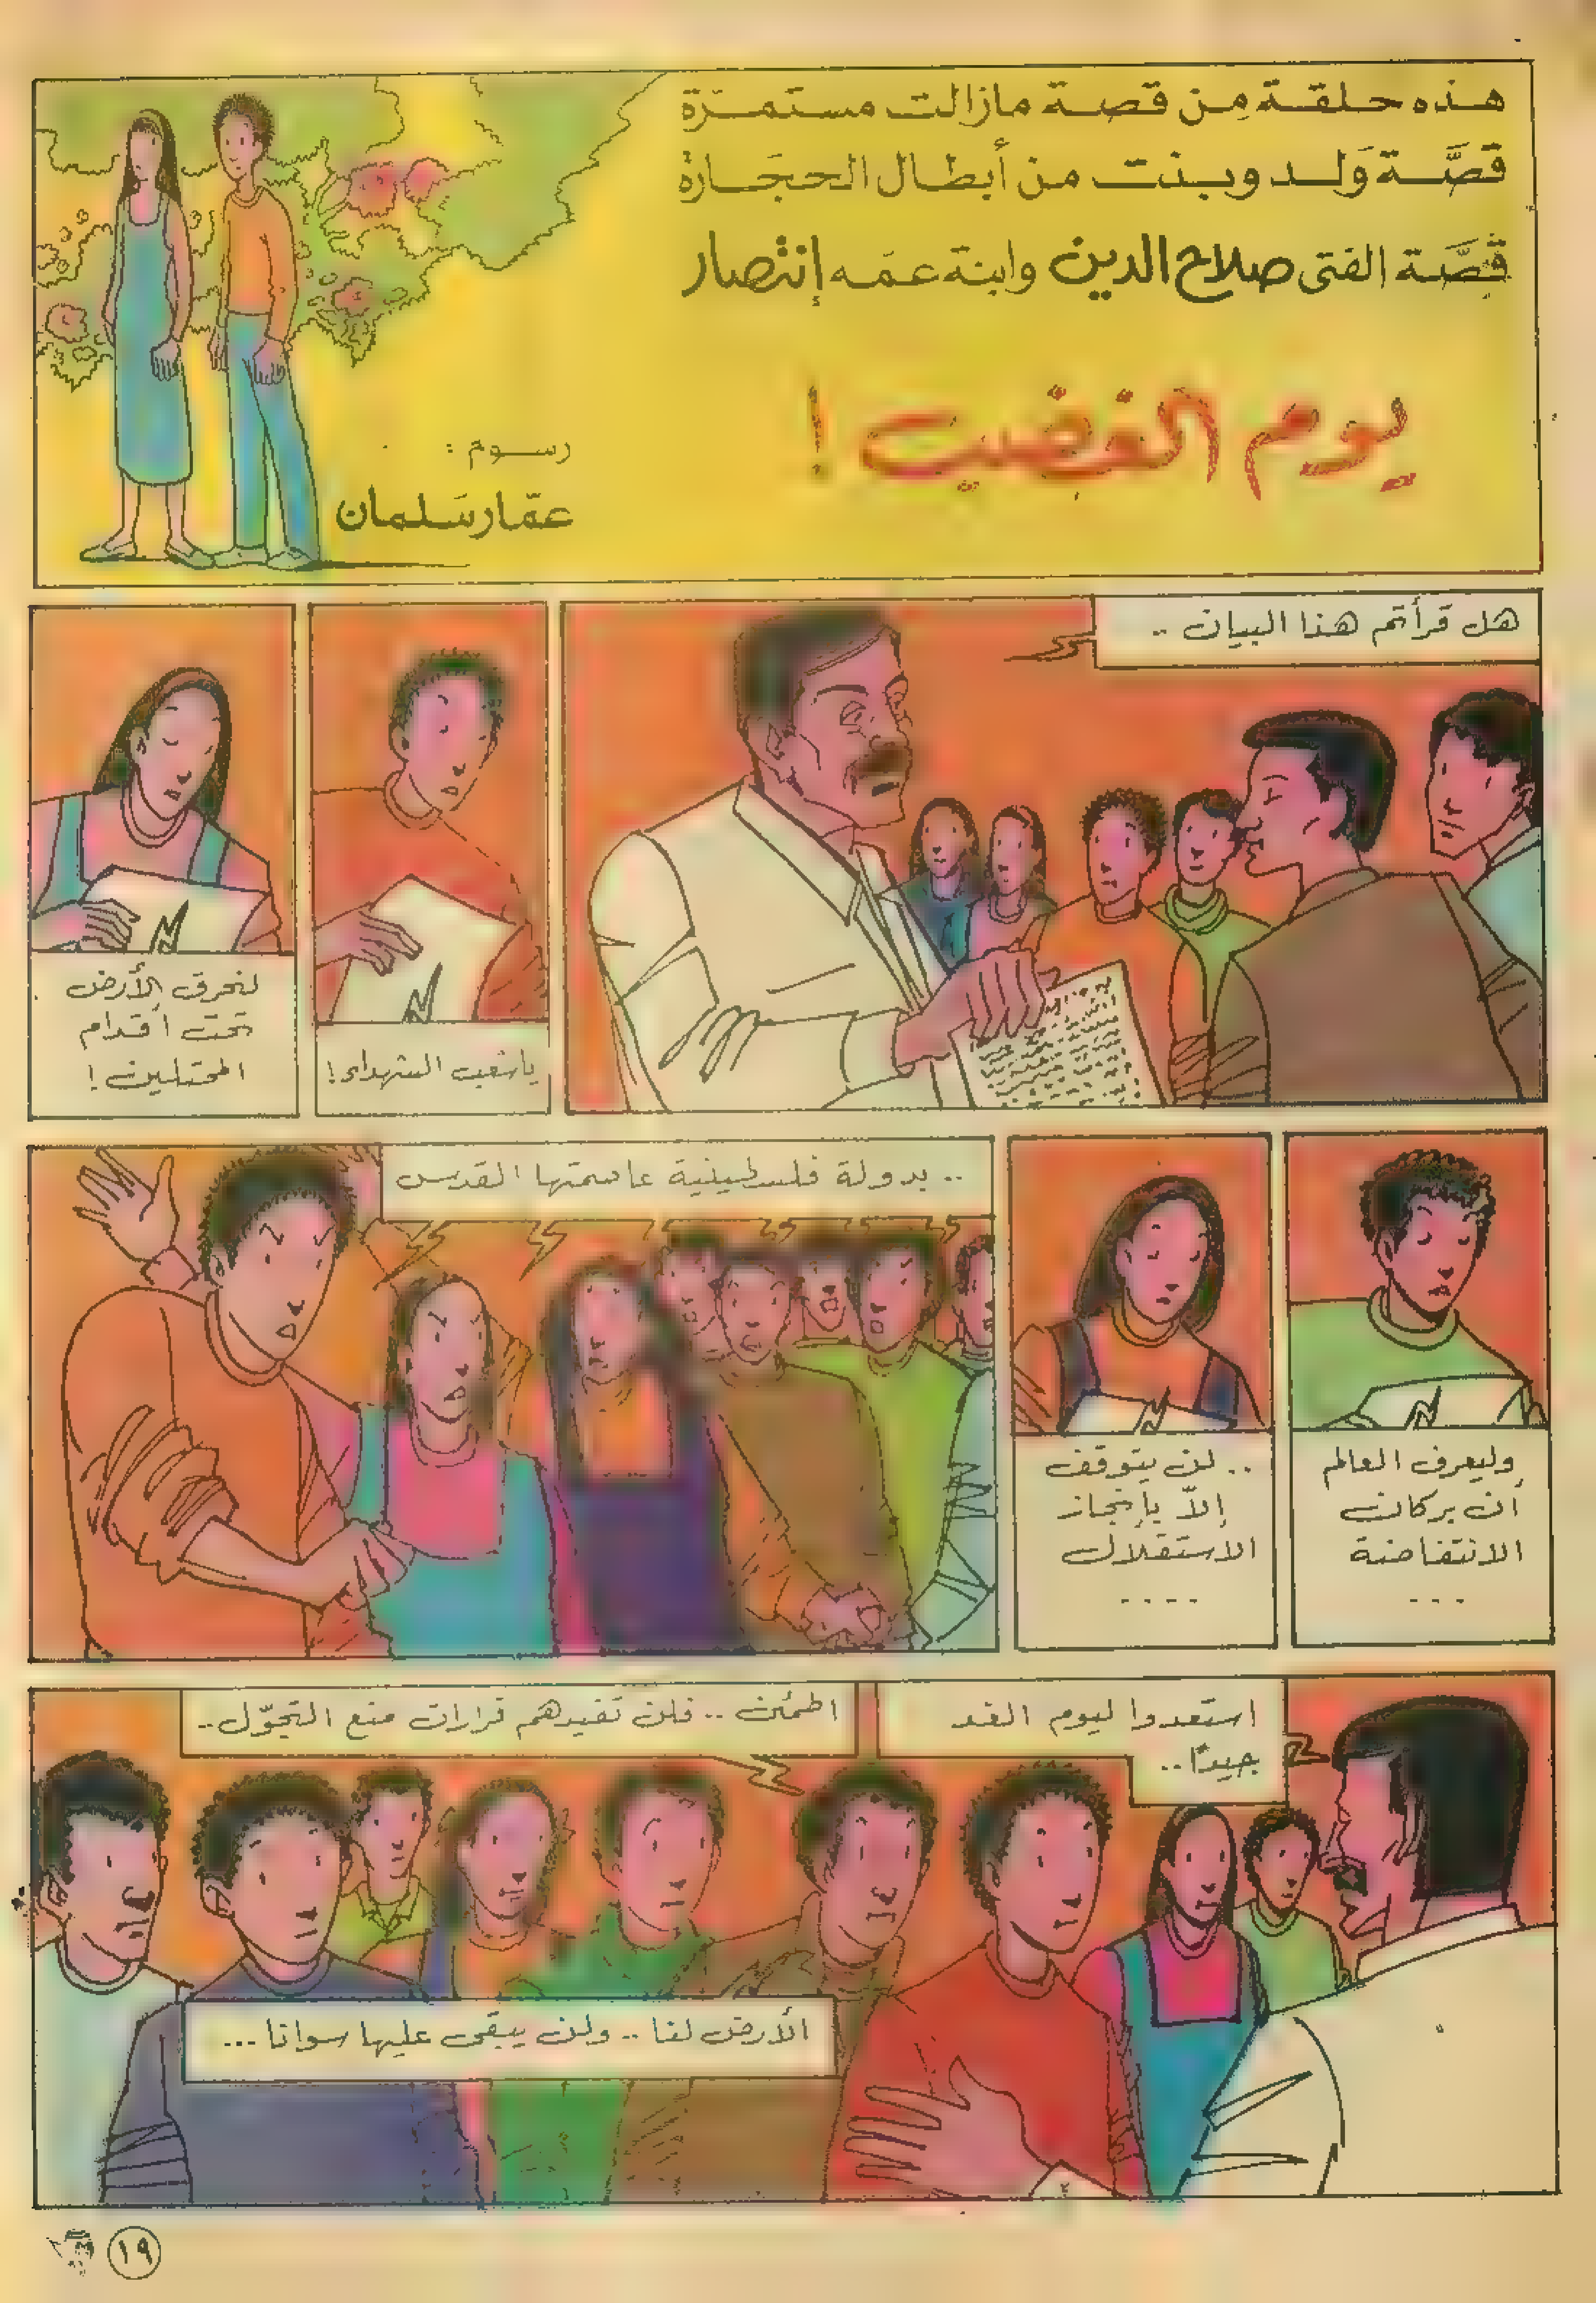 هذه حلقة من قصة مازالت مستمرّة
قصَّة وَلد وبنت من أبطال الحجَارة
قصَّة الفتى صلاح الدين وابنة عمّه إنتصار
يوم الغضب !
رسوم :
عمّار سَلمان
هل قرأتم هذا البيان ..
يا شعب الشهداء !
لنحرق الأرض
تحت أقدام
المحتلين !
وليعرف العالم
أن بركان
الانتفاضة
...
.. لن يتوقف
إلاّ بإنجاز
الاستقلال
....
.. بدولة فلسطينية عاصمتها القدس
استعدوا ليوم الغد
جيدًا ..
اطمئن .. فلن تفيدهم قرارات منع التجوّل ..
الأرض لنا .. ولن يبقى عليها سوانا ...
١٩